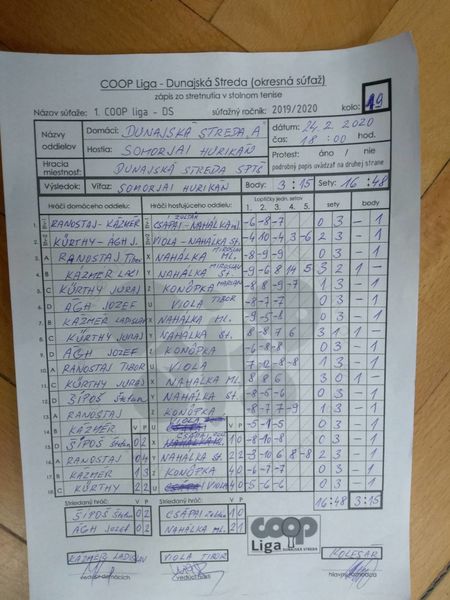 COOP Liga - Dunajská Streda (okresná súťaž)
zápis zo stretnutia v stolnom tenise
Názov súťaže: 1. COOP liga - DS súťažný ročník: 2019/2020 kolo: 19
Názvy oddielov Domáci: DUNAJSKÁ STREDA A dátum: 24.2.2020
Hostia: SOMORJAI HURIKÁN čas: 18:00 hod.
Hracia miestnosť: DUNAJSKÁ STREDA SPTŠ Protest: áno / nie
podrobný popis uvádzať na druhej strane
Výsledok: Víťaz: SOMORJAI HURIKÁN Body: 3:15 Sety: 16:48
Hráči domáceho oddielu: Hráči hosťujúceho oddielu: Loptičky jedn. setov sety body
1. 2. 3. 4. 5.
1. RANOSTAJ-KÁZMÉR CSÁPAI-NAHÁLKA ml. -6 -8 -7 0 3 - 1
2. KÜRTHY-ÁGH J. VIOLA-NAHÁLKA St. -4 10 -4 3 -6 2 3 - 1
3. A RANOSTAJ Tibor X NAHÁLKA MIROSLAV ML. -8 -9 -9 0 3 - 1
4. B KÁZMÉR LACI Y NAHÁLKA MIROSLAV St. -9 -6 8 14 5 3 2 1 -
5. C KÜRTHY JURAJ Z KONÔPKA MARIAN -8 8 -9 -7 1 3 - 1
6. D ÁGH JOZEF U VIOLA TIBOR -8 -7 -7 0 3 - 1
7. B KÁZMÉR LADISLAV X NAHÁLKA Ml. -9 -5 -8 0 3 - 1
8. C KÜRTHY JURAJ Y NAHÁLKA St. 8 -8 7 6 3 1 1 -
9. D ÁGH JOZEF Z KONÔPKA -6 -8 -8 0 3 - 1
10. A RANOSTAJ TIBOR U VIOLA 7 -12 -8 -8 1 3 - 1
11. C KÜRTHY JURAJ X NAHÁLKA ML. 8 8 6 3 0 1 -
12. D ŠIPOŠ Štefan Y NAHÁLKA St. -8 -5 -6 0 3 - 1
13. A RANOSTAJ Z KONÔPKA -8 -7 7 -9 1 3 - 1
14. B KÁZMÉR V P U VIOLA V P -5 -1 -5 0 3 - 1
15. D ŠIPOŠ Štefan 0 2 X CSÁPAI 1 0 -8 -10 -8 0 3 - 1
16. A RANOSTAJ 0 4 Y NAHÁLKA St. 2 2 -3 -10 6 8 -8 2 3 - 1
17. B KÁZMÉR 1 3 Z KONÔPKA 4 0 -6 -7 -7 0 3 - 1
18. C KÜRTHY 2 2 U VIOLA 4 0 16:48 3:15
Striedaný hráč: V P Striedaný hráč: V P
ŠIPOŠ Štefan 0 2 CSÁPAI Zoltán 1 0
ÁGH Jozef 0 2 NAHÁLKA ML. 2 1
coop Liga DUNAJSKÁ STREDA
KÁZMÉR LADISLAV VIOLA TIBOR KOLESÁR
vedúci domácich vedúci hostí hlavný rozhodca